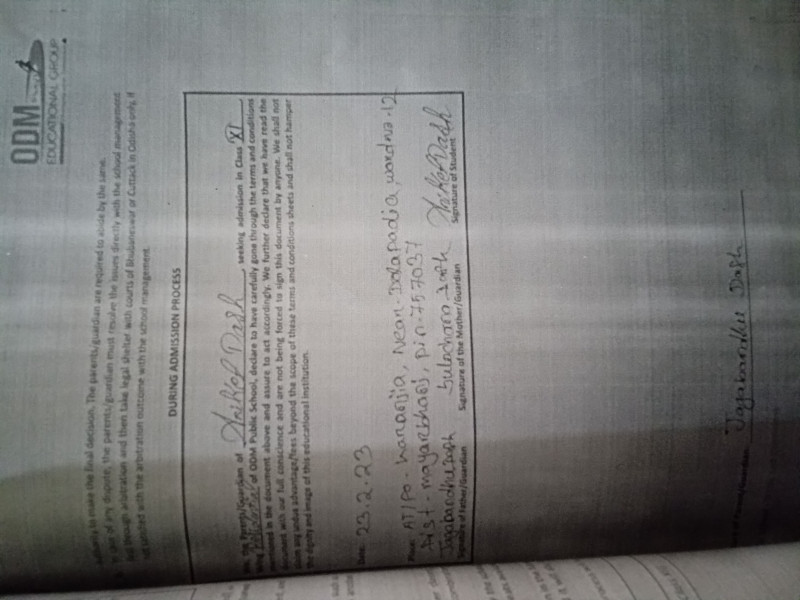 ODM
EDUCATIONAL GROUP
authority to make the final decision. The parents/guardian are required to abide by the same.
In case of any dispute, the parents/guardian must resolve the issues directly with the school management
through arbitration and then take legal shelter with courts of Bhubaneswar or Cuttack in Odisha only, if
not satisfied with the arbitration outcome with the school management.
DURING ADMISSION PROCESS
the Parents/Guardian of Dash, seeking admission in Class XI
of ODM Public School, declare to have carefully gone through the terms and conditions
mentioned in the document above and assure to act accordingly. We further declare that we have read the
document with our full conscience and are not being forced to sign this document by anyone. We shall not
claim any undue advantage/fees beyond the scope of these terms and conditions sheets and shall not hamper
the dignity and image of this educational institution.
Date: 23.2.23
Place: AT/Po - Karanjia, Near- wardno-12
Dist - mayurbhanj, pin-757037
Jagabandhu Dash Sulochana Dash Dash
Signature of Father/Guardian Signature of the Mother/Guardian Signature of Student
Jagabandhu Dash